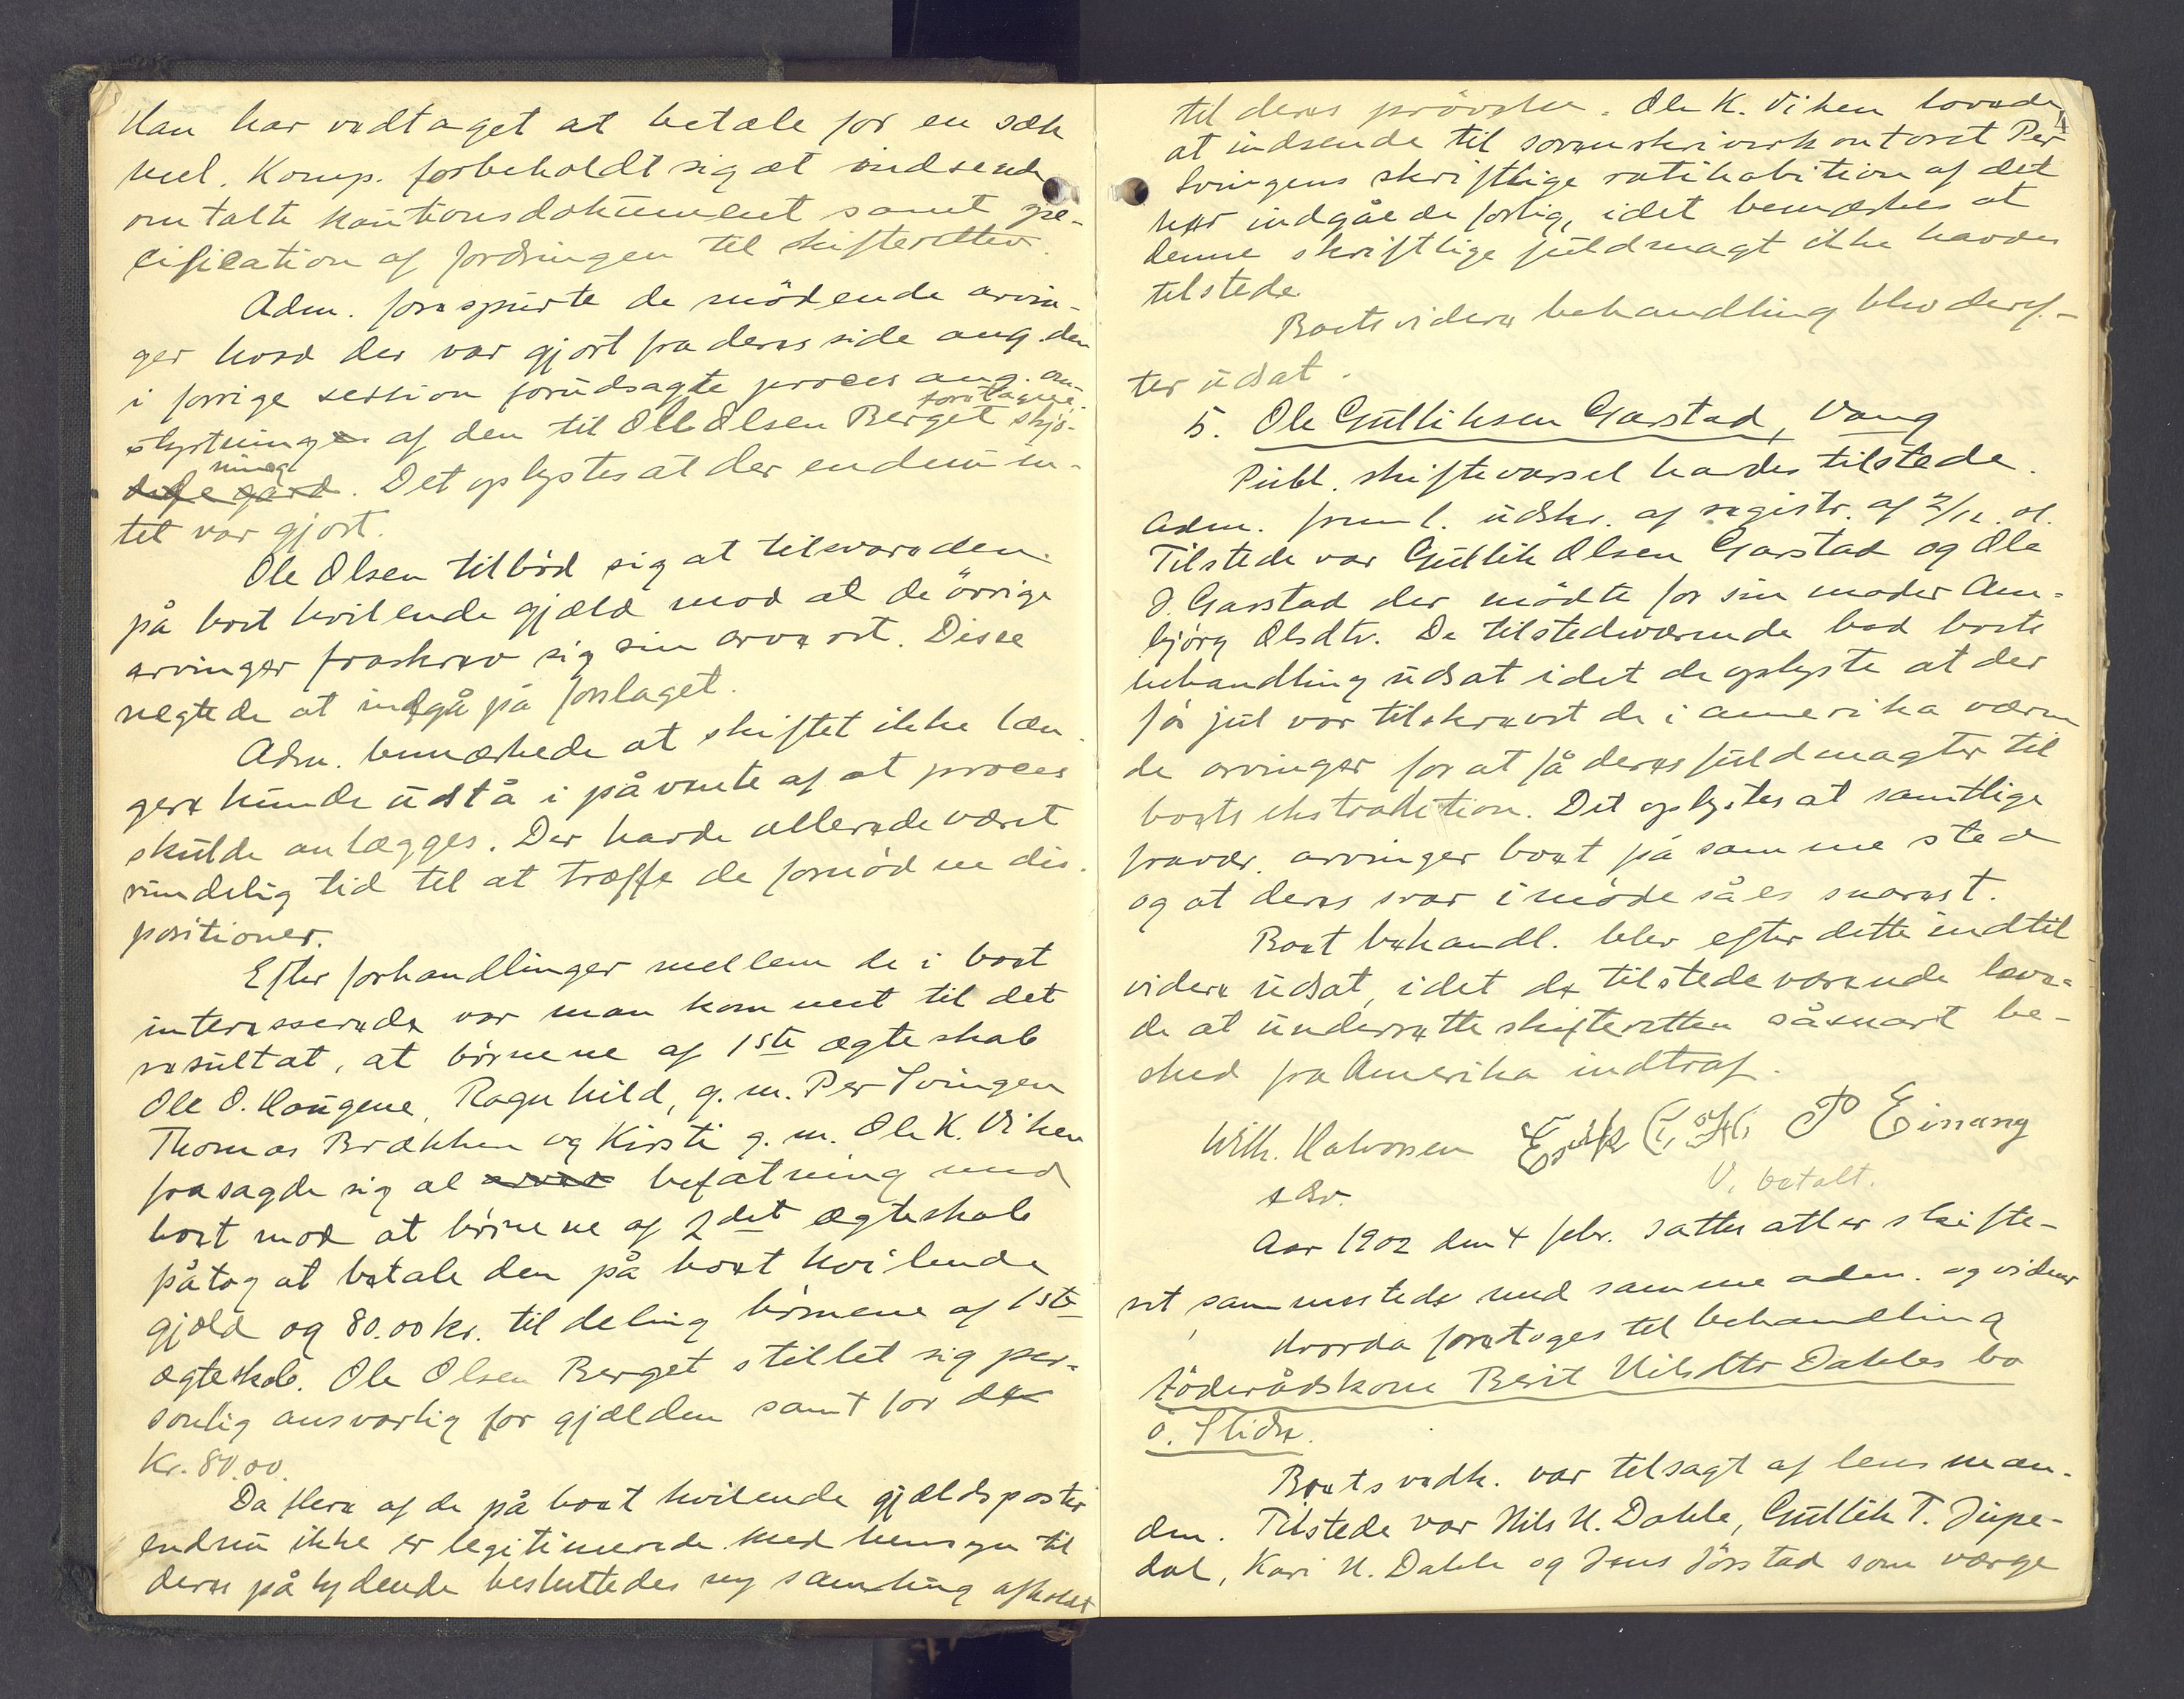 Han har vedtaget at betale for en sæk
mel. Komp. forbeholdt sig at indsende
omtalte kautionsdokument samt spe-
cification af fordringen til skifteretten.
Adm. forespurte de mödende arvin-
ger hvad der var gjort fra deres side ang. den
i forrige session forudsagte proces ang. om-
styrtning af den til Ole Olsen Berget foretagne skjö-
ning. Det oplystes at der endnu in-
tet var gjort.
Ole Olsen tilböd sig at tilsvare den
på boet hvilende gjæld mod at de övrige
arvinger fraskrev sig sin arveret. Disse
negtede at indgå på forslaget.
Adm. bemærkede at skiftet ikke læn-
gere kunde udstå i påvente af at proces
skulde anlægges. Der havde allerede været
rundelig tid til at træffe de fornödne dis-
positioner.
Efter forhandlinger mellem de i boet
interesserede var man kommet til det
resultat, at börnene af 1ste ægteskab
Ole O. Haugene, Ragnhild, g. m. Per Svingen
Thomas Brækken og Kirsti g. m. Ole K. Viken
frasagde sig al befatning med
boet mod at börnene af 2det ægteskab
påtog at betale den på boet hvilende
gjæld og 80.00 kr. til deling börnene af 1ste
ægteskab. Ole Olsen Berget stillet sig per-
sonlig ansvarlig for gjælden samt for de
Kr. 80.00.
Da flere af de på boet hvilende gjældsposter
endnu ikke er legitimerede med hensyn til
deres pålydende besluttedes ny samling afholdt
4
til deres prövelse. Ole K. Viken lovede
at indsende til sorenskriverkontoret Per
Svingens skriftlige ratihabition af det
her indgåede forlig, idet bemærkes at
denne skriftlige fuldmagt ikke havdes
tilstede.
Boets videre behandling blev deref-
ter udsat.
5. Ole Gulliksen Garstad, Vang
Publ. skiftevarsel havdes tilstede.
Adm. freml. udskr. af registr. af 2/12. 01.
Tilstede var Gullik Olsen Garstad og Ole
J. Garstad der mödte for sin moder Am-
björg Olsdtr. De tilstedeværende bad boets
behandling udsat idet de oplyste at der
för jul var tilskrevet de i amerika væren
de arvinger for at få deres fuldmagter til
boets ekstradition. Det oplystes at samtlige
fravær. arvinger boet på samme sted
og at deres svar imödesåes snarest.
Boet behandl. blev efter dette indtil
videre udsat, idet de tilstedeværende love-
de at underrette skifteretten såsnart be-
sked fra Amerika indtraf.
Wilh. Halvorsen P Einang
V. betalt.
Aar 1902 den 4 febr. sattes atter skifte-
ret sammesteds med samme adm. og vidner
Hvorda foretoges til behandling
Föderådskone Berit Nilsdtr Dahles bo
ö. Slidre.
Boets vedk. var tilsagt af lensman-
den. Tilstede var Nils N. Dahle, Gullik T. Jupe-
dal, Kari N. Dahle og Jens Jörstad som værge